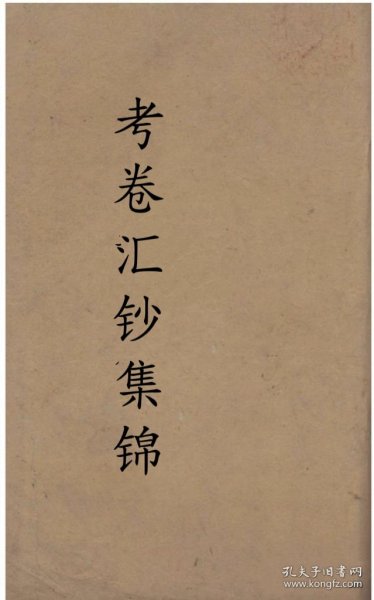 考卷汇钞集锦
孔夫子旧书网
www.kongfz.com